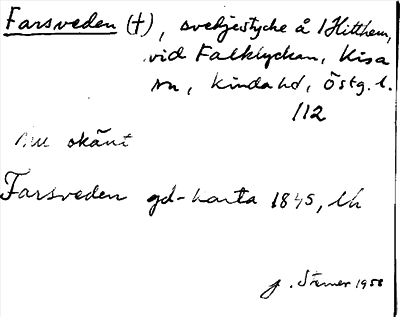 Farsveden (†), svedjestycke å 1 Hitthem,
vid Falklyckan, Kisa
sn, Kinda hd, Östg. l.
112
nu okänt
Farsveden gd-karta 1845, lh
J. Stemer 1958